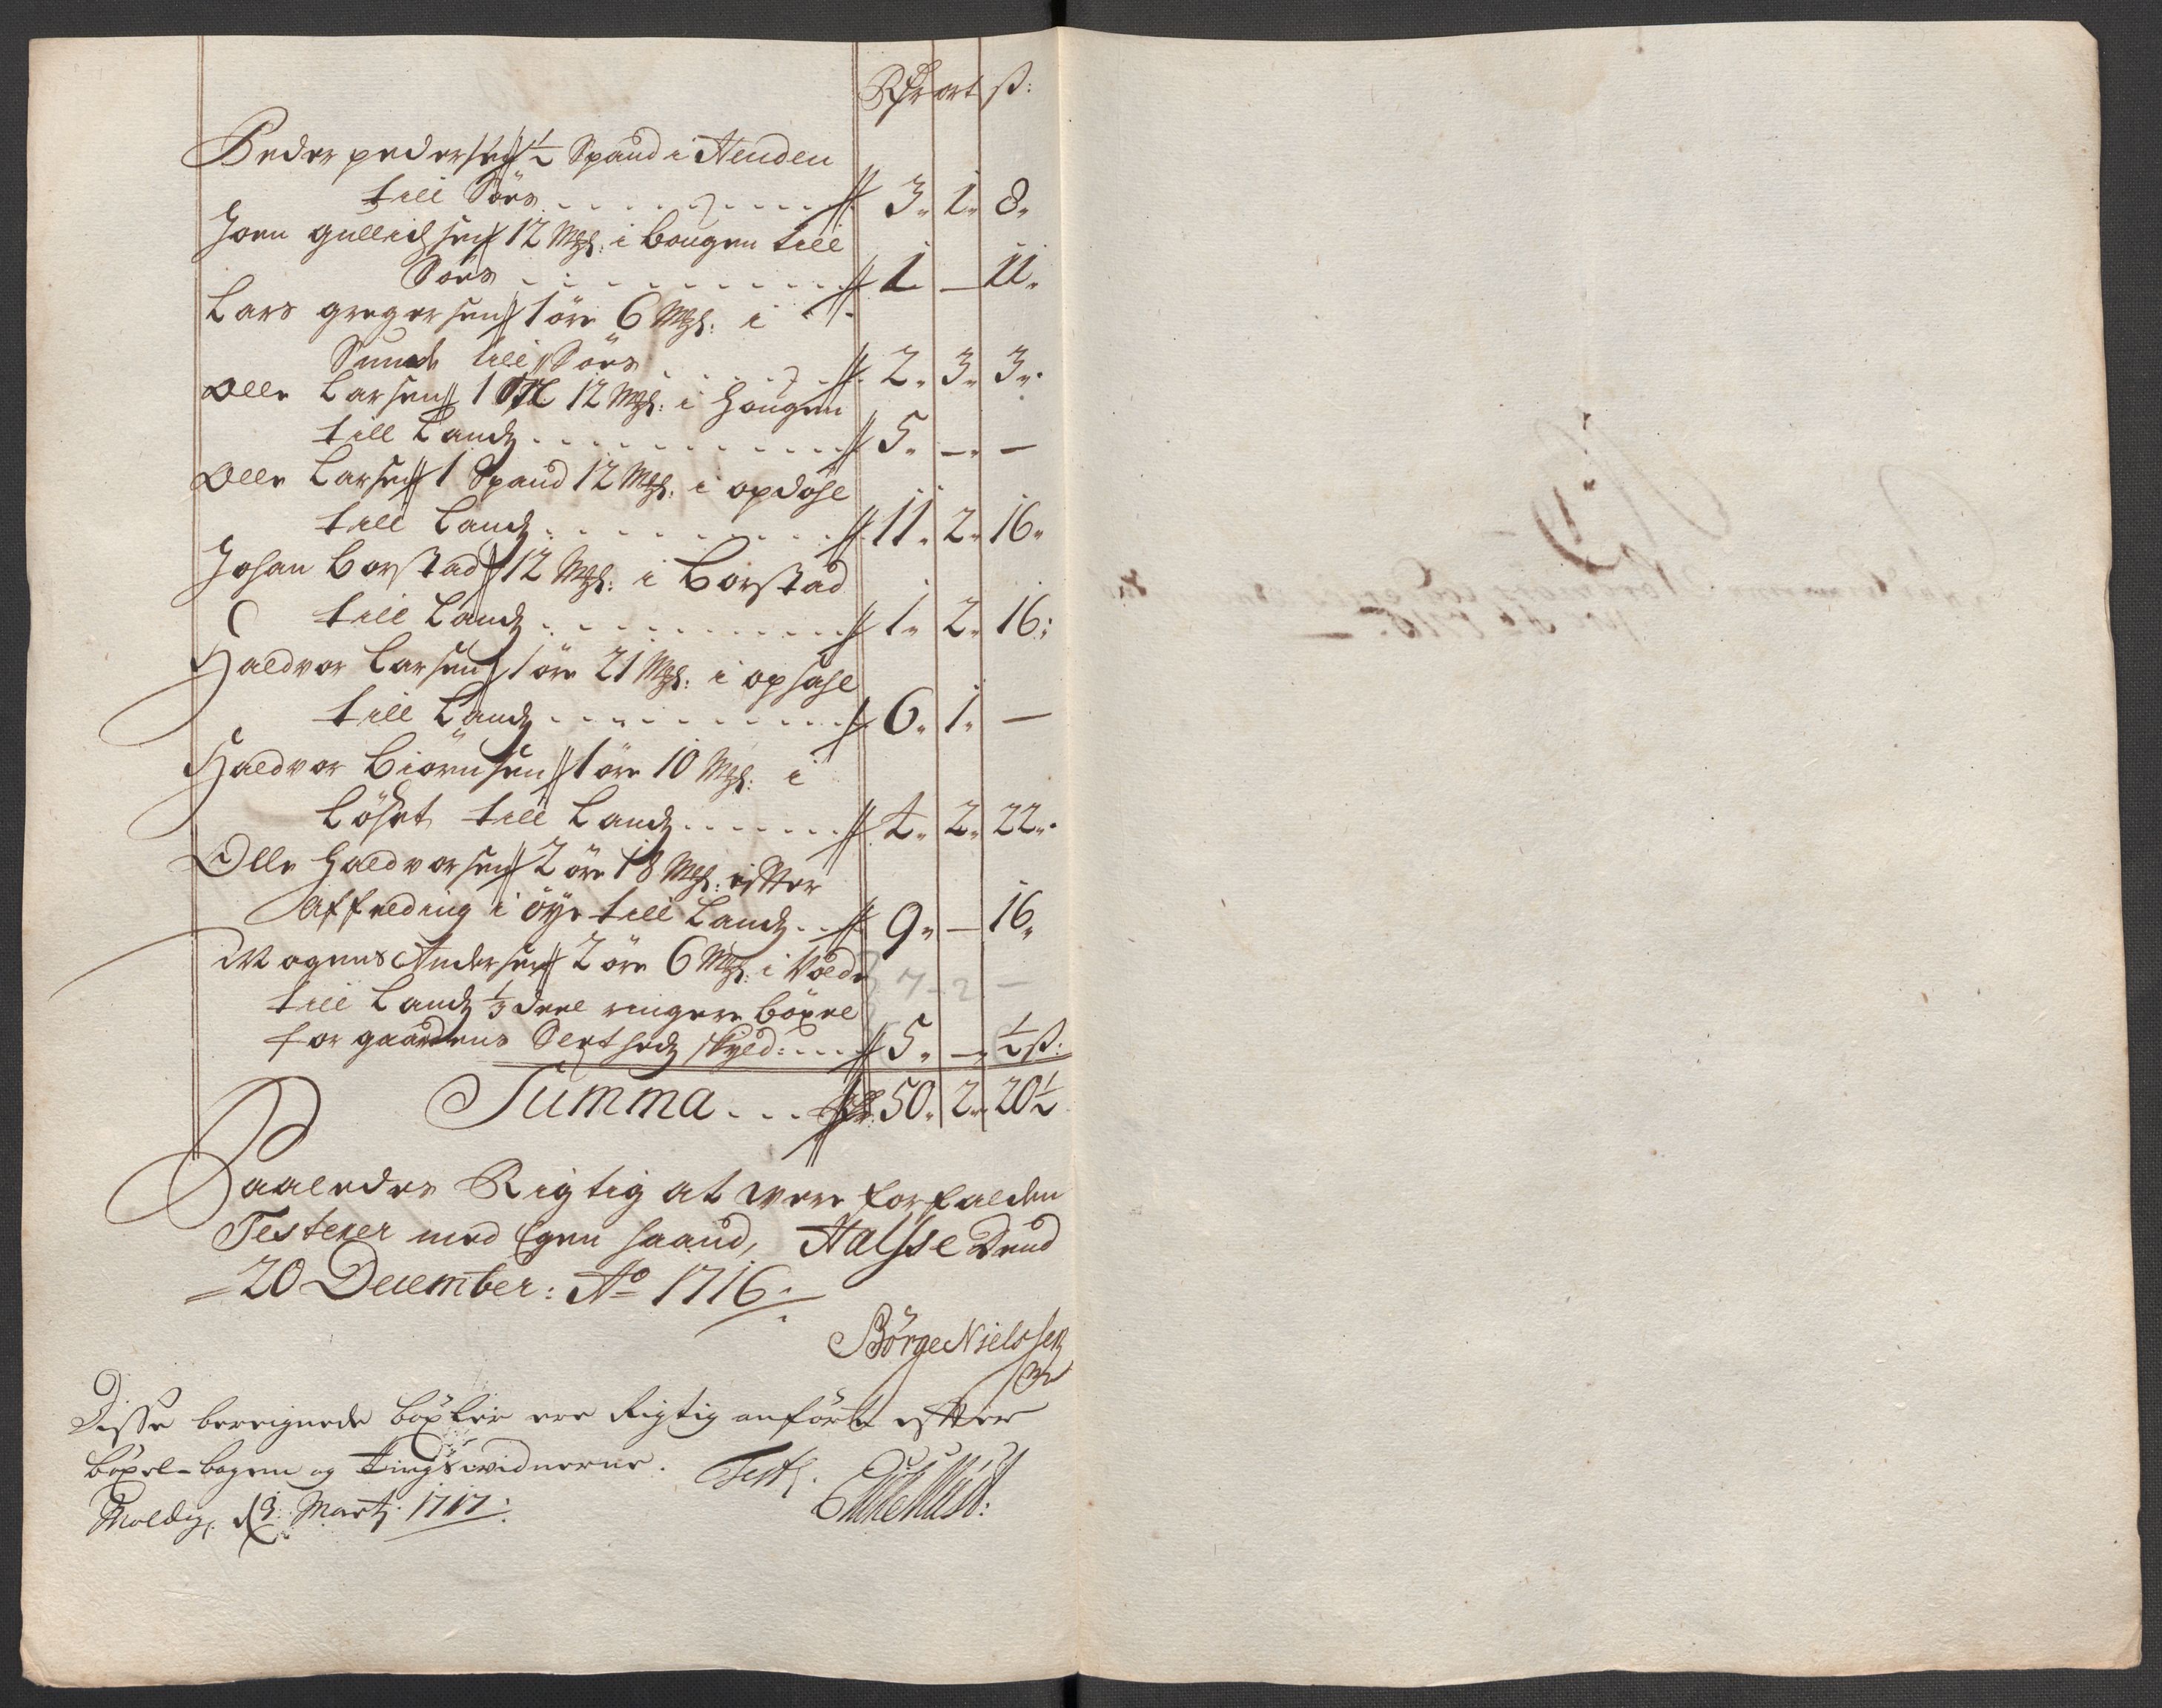 Rdr ort ß:
Peder pedersen ½ Spand i Henden
till Sørs 3. 1. 8.
Joen gullichsen 12 Mrk: i bougen till
Sørs 1 – 11.
Lars gregersen 1 øre 6 Mrk: i
Sunde till Sørs 2. 3. 3.
Olle Larsen 1 12 Mrk: i Hougen
till Landz 5. – –
Olle Larsen 1 Spand 12 Mrk: i opdøhl
till Landz 11. 2. 16.
Johan Borstad 12 Mrk: i Borstad
till Landz 1. 2. 16:
Haldvor Larsen 1 øre 21 Mrk: i opsahl
till Landz 6. 1. –
Haldvor Biørnsen 1 øre 10 Mrk: i
Løset till Landz 4. 2. 22.
Olle Haldvorsen 2 øre 18 Mrk: efter
Affelding i øye till Landz 9. – 16.
Mogens Andersen 2 øre 6 Mrk: i Volde
7 - 2 –
till Landz ⅓ deel ringere böxel
for gaardens Slethedz skyld: 5. – ½ ß.
Summa 50. 2. 20½
Saaledes Rigtig at were forfalden
Testerer med Egen haand, Halsse Dend
20 December: Ao 1716.
Børge Nielssen
Disse beregnede böxler ere Rigtig anførte efter
böxel-bogen og tingswidnerne. Test.
Molde, d 3: Marty 1717: